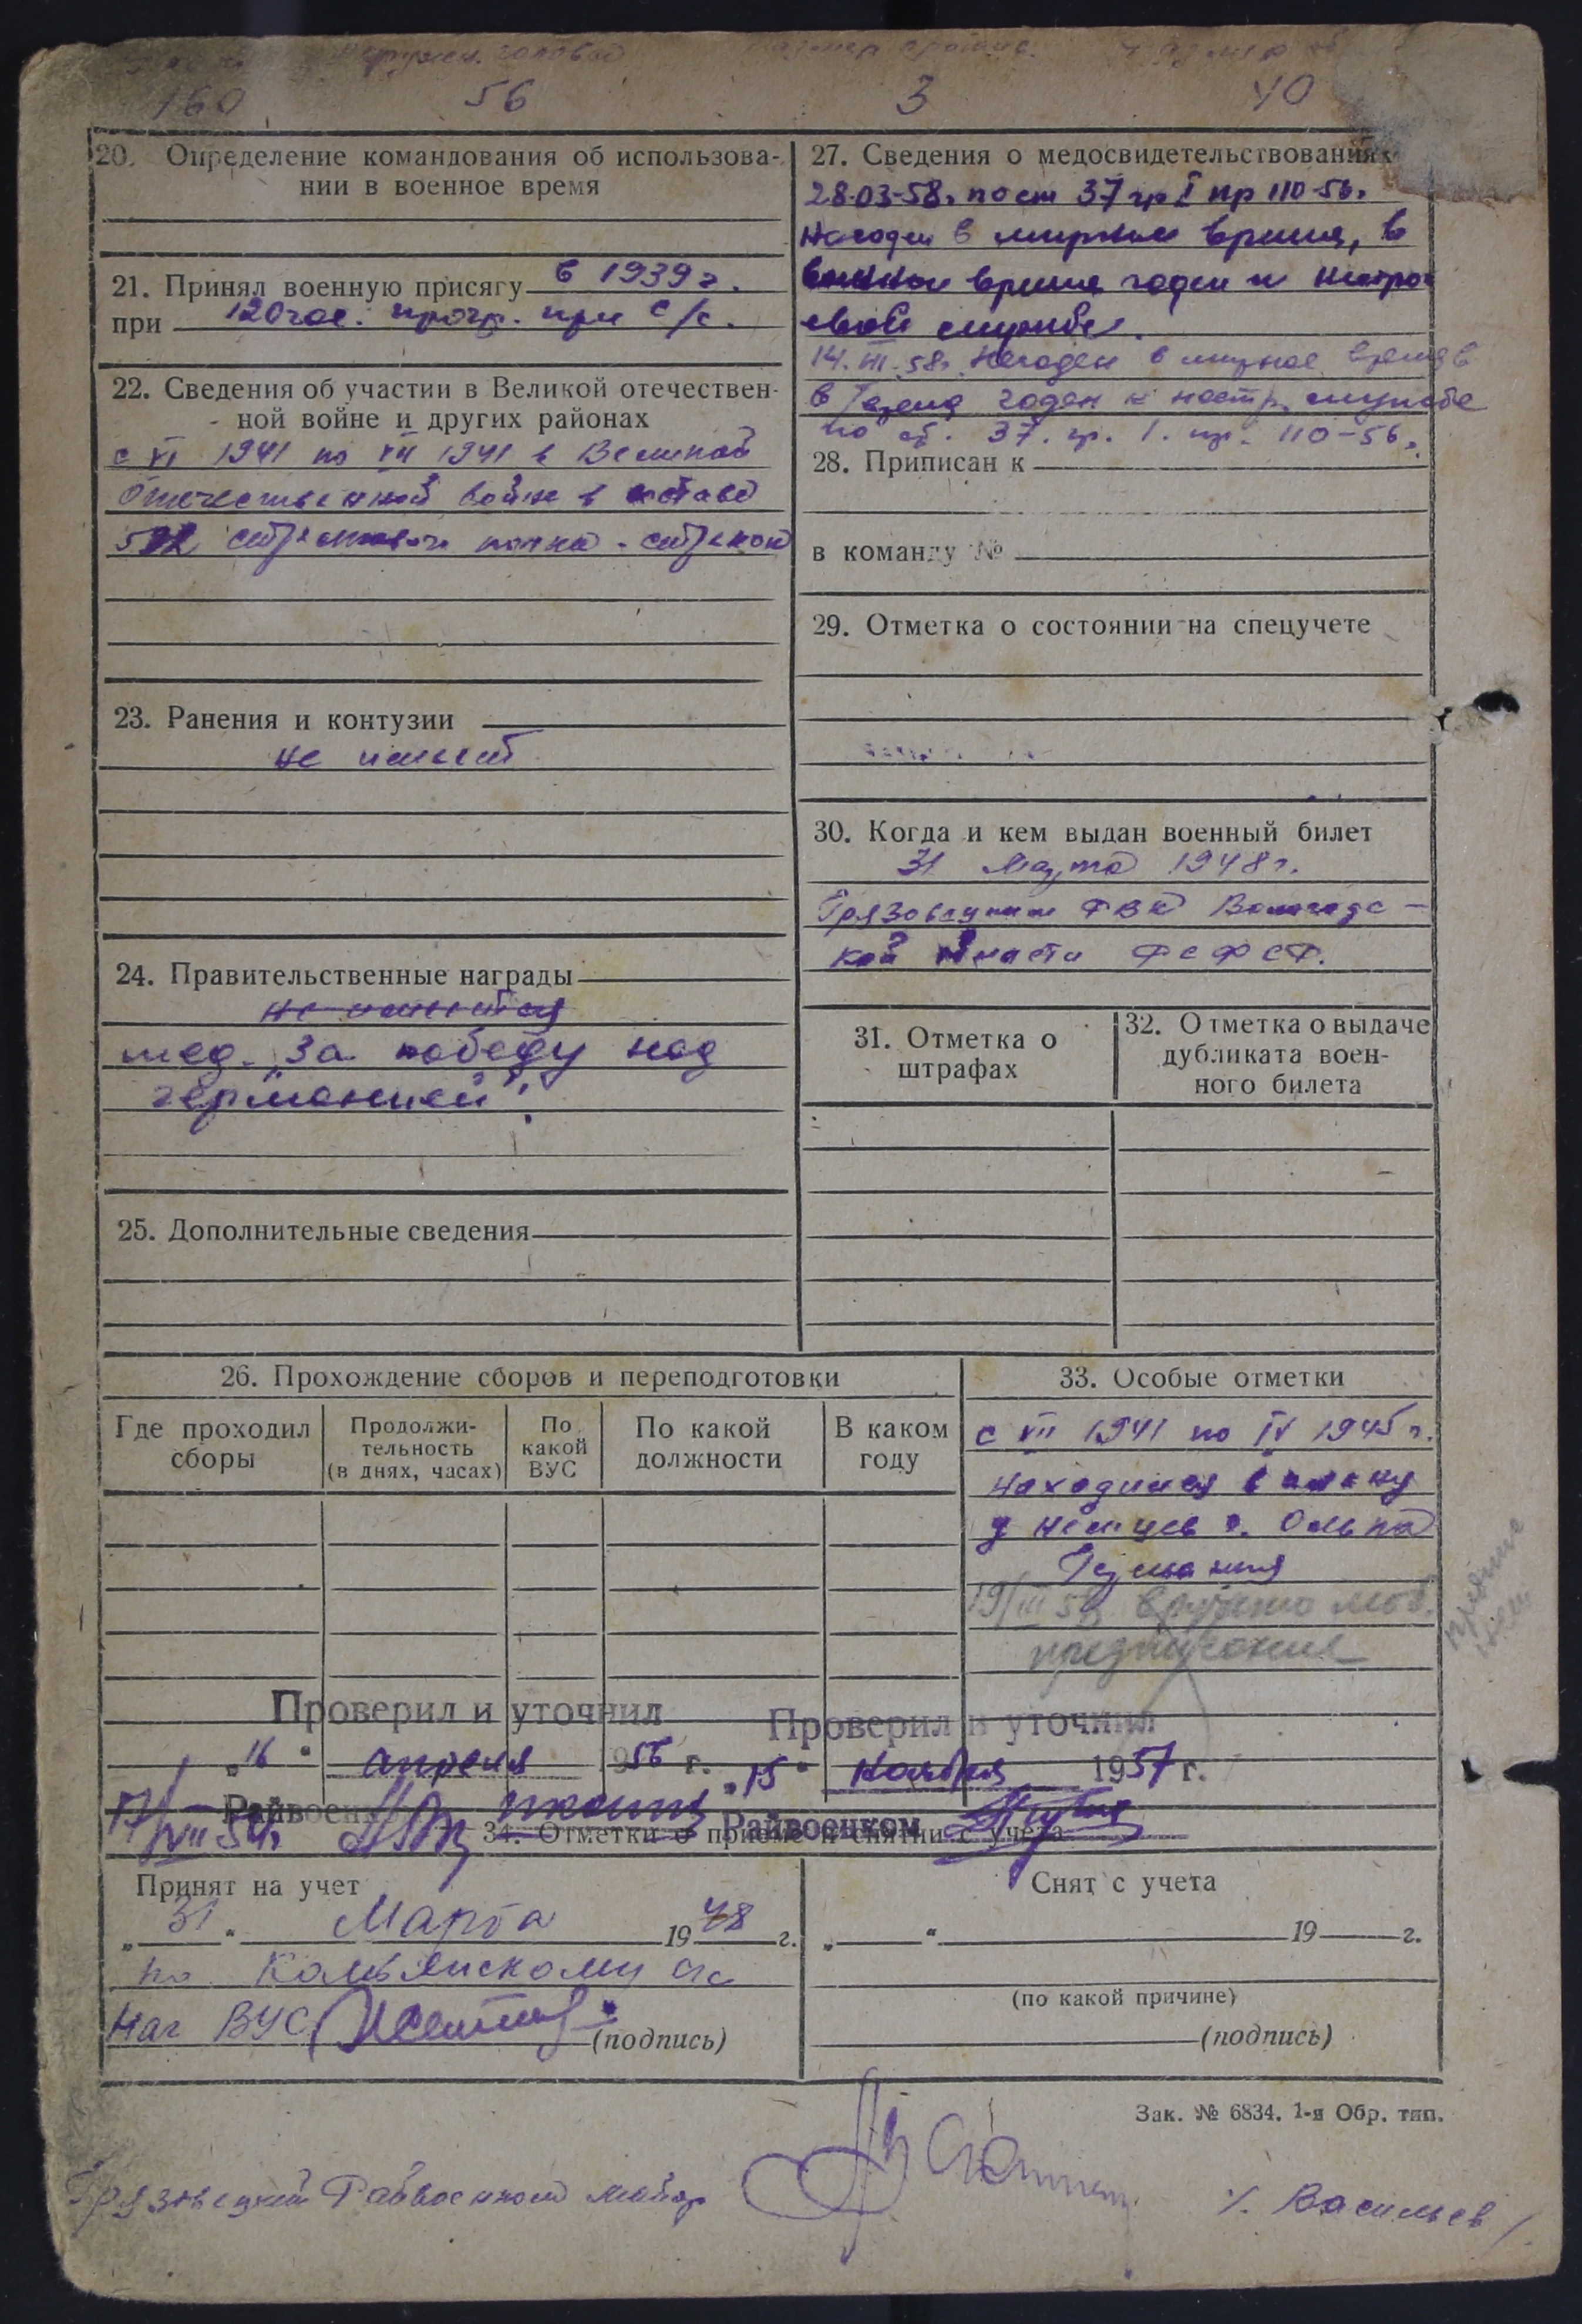 окружн. головы
160 56 3 40
20. Определение командования об использова-
нии в военное время
21. Принял военную присягу в 1939 г.
при 120 час. прогр. при с/с.
22. Сведения об участии в Великой отечествен-
ной войне и других районах
с VI 1941 по VII 1941 в Великой
Отечественной войне в составе
стрелкового полка - стрелком
23. Ранения и контузии
не имеет
24. Правительственные награды
не имеется
мед. "За победу над
германией".
25. Дополнительные сведения
27. Сведения о медосвидетельствованиях
28-03-58г. по ст 37 гр I пр 110-56г.
Негоден в мирное время, в
военное время годен к нестро-
евой службе.
14.III.58г. Негоден в мирное время в
в годен к нестр. службе
по ст. 37. гр. 1. пр. 110-56г.
28. Приписан к
в команду №
29. Отметка о состоянии на спецучете
30. Когда и кем выдан военный билет
31 Марта 1948 г.
Грязовецким РВК Вологодс-
кой области РСФСР.
31. Отметка о
штрафах
32. Отметка о выдаче
дубликата воен-
ного билета
26. Прохождение сборов и переподготовки
Где проходил
сборы
Продолжи-
тельность
(в днях, часах)
По
какой
ВУС
По какой
должности
В каком
году
33. Особые отметки
с VII 1941 по IV 1945 г.
находился в плену
у немцев г.
Германия
19/III 58 вручено моб.
предписание
Проверил и уточнил
"16" апреля 1956 г.
Райвоен
17/VII 54г.
Проверил и уточнил
"15" Ноября 1957 г.
Райвоенком
34. Отметки о приеме и снятии с учета
Принят на учет
"31" Марта 1948 г.
по Комьянскому с/с
Нач ВУС (подпись)
Снят с учета
" " 19 г.
(по какой причине)
(подпись)
Зак. № 6834. 1-я Обр. тип.
Грязовецкий Райвоенком майор /. Васильев /.